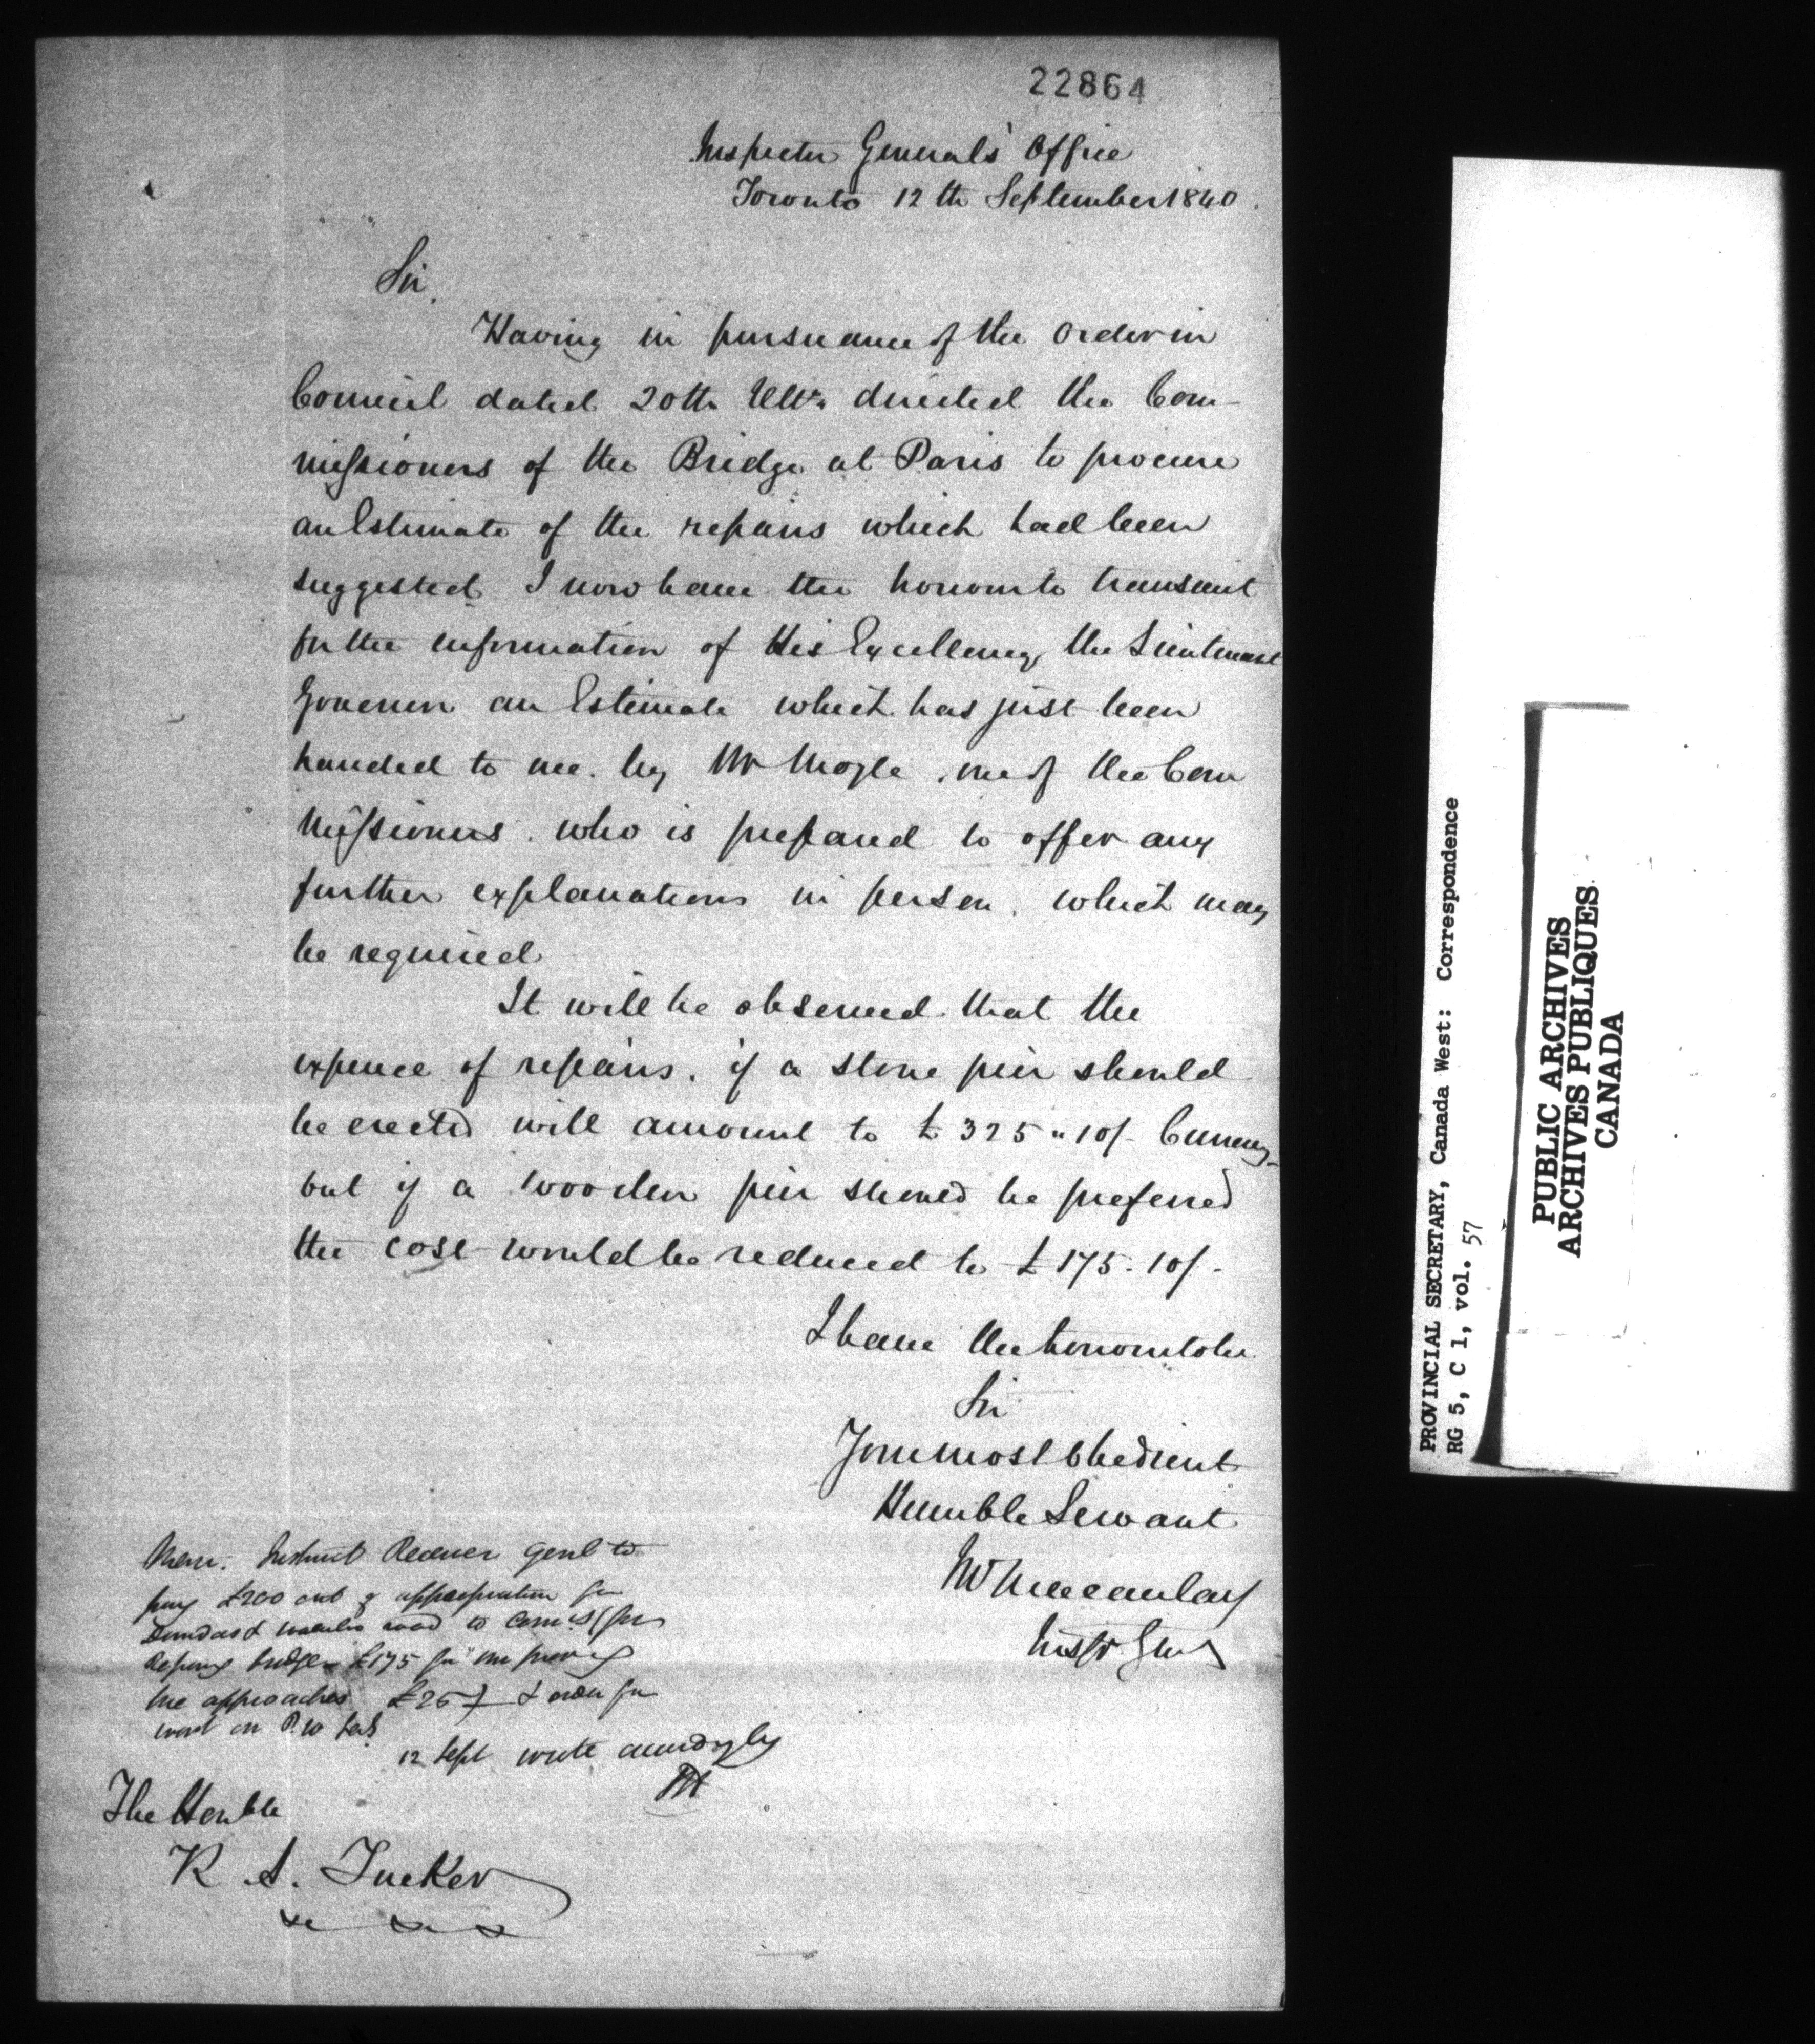 22864
Inspector General's Office
Toronto 12th September 1840.
Sir,
Having in pursuance of the Order in
Council dated 20th Ulto. directed the Com-
missioners of the Bridge at Paris to procure
an Estimate of the repairs which had been
suggested I now have the honour to transmit
for the information of His Excellency the Lieutenant
Governor an Estimate which has just been
handed to me by Mr Moyle, one of the Com
missioners who is prepared to offer any
further explanations in person, which may
be required
It will be observed that the
expence of repairs, if a stone pier should
be erected will amount to £325 " 10/- Currency-
but if a wooden pier should be preferred
the cost would be reduced to £175. 10/-
I have the honour to be
Sir
Your most obedient
Humble Servant
Macaulay
Inspr Genl
Mem. Instruct Receiver Genl to
pay £200 out of appropriation for
Dundas & Waterloo road to Comrs (for
Repairing bridge £175 for improving
the approaches £25) & order for
12 Sept wrote accordingly
The Honble
R A. Tucker
PROVINCIAL SECRETARY, Canada West: Correspondence
RG 5, C 1, vol. 57
PUBLIC ARCHIVES
ARCHIVES PUBLIQUES
CANADA